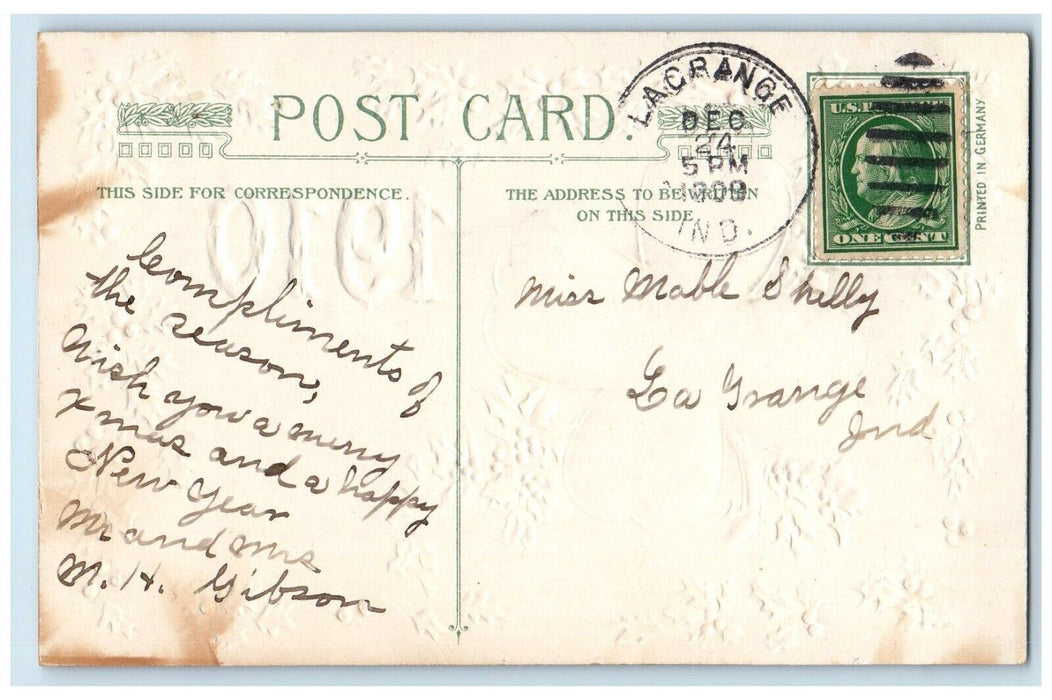 POST CARD.
THIS SIDE FOR CORRESPONDENCE.
THE ADDRESS TO BE WRITTEN
ON THIS SIDE
LAGRANGE
DEC
24
5 PM
1909
IND.
U.S.
ONE CENT
PRINTED IN GERMANY
1910
Compliments of
the season,
Wish you a merry
Xmas and a happy
New Year
Mr and Mrs
M. H. Gibson
Miss Mable Shelly
La Grange
Ind